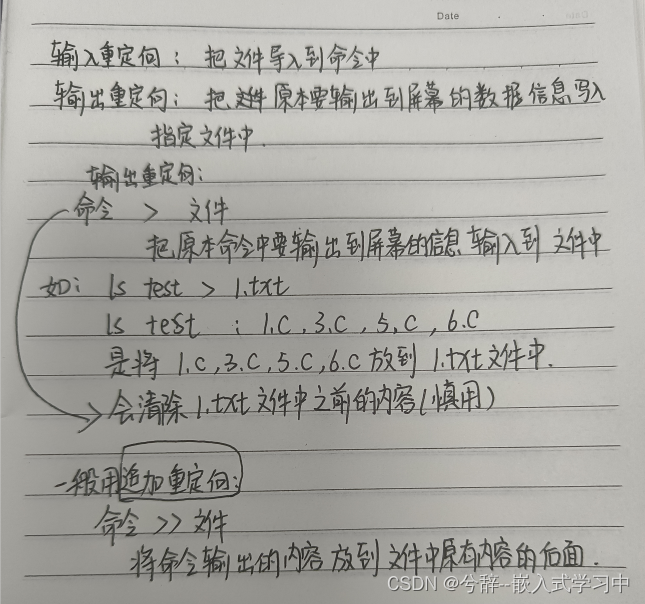 Date
输入重定向：把文件导入到命令中
输出重定向：把原本要输出到屏幕的数据信息写入
指定文件中.
输出重定向：
命令 > 文件
把原本命令中要输出到屏幕的信息输入到文件中
如：ls test > 1.txt
ls test : 1.c , 3.c , 5.c , 6.c
是将 1.c,3.c,5.c,6.c 放到 1.txt文件中.
会清除1.txt文件中之前的内容(慎用)
一般用追加重定向：
命令 >> 文件
将命令输出的内容放到文件中原有内容的后面.
CSDN @兮辞--嵌入式学习中